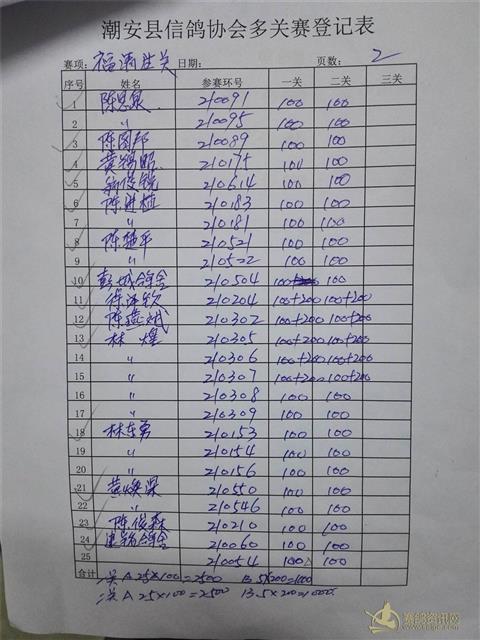 潮安县信鸽协会多关赛登记表
赛项: 福清三关 日期: 页数: 2
序号 姓名 参赛环号 一关 二关 三关
1 陈思泉 210091 100 100
2 〃 210095 100 100
3 陈图邦 210089 100 100
4 黄鹤昭 210175 100 100
5 210614 100 100
6 陈进植 210183 100 100
7 〃 210181 100 100
8 陈楚平 210521 100 100
9 〃 210522 100 100
10 彭城鸽舍 210504 100 100
11 徐泽钦 210204 100+200 100+200
12 陈燕斌 210302 100+200 100+200
13 林煌 210305 100+200 100+200
14 〃 210306 100+200 100+200
15 〃 210307 100+200 100+200
16 〃 210308 100 100
17 〃 210309 100 100
18 林东勇 210153 100 100
19 〃 210154 100 100
20 〃 210156 100 100
21 黄焕果 210550 100 100
22 〃 210546 100 100
23 陈俊森 210210 100 100
24 鸽舍 210060 100 100
25 210054 100 100
合计 一关 A 25×100=2500 B 5×200=1000
二关 A 25×100=2500 B 5×200=1000
赛鸽资讯网